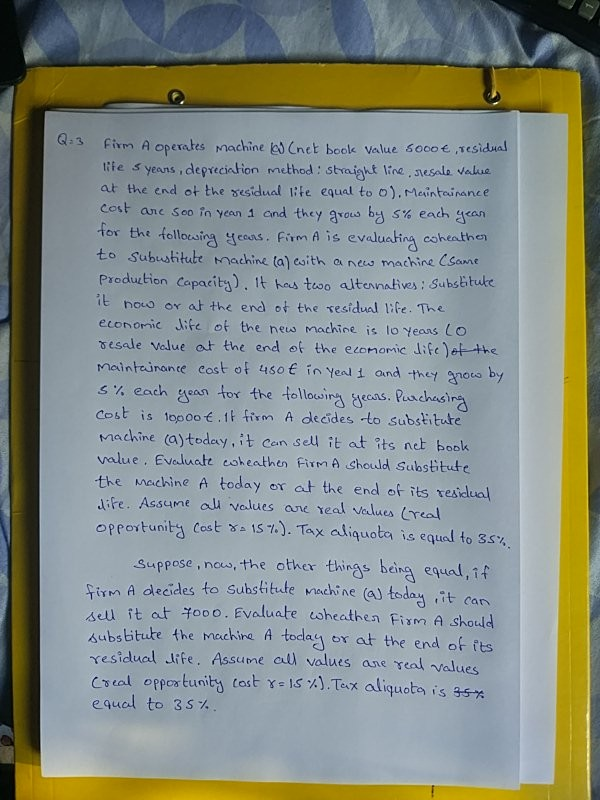 Q=3 Firm A operates machine (a) (net book value 5000€, residual
life 5 years, depreciation method: straight line, resale value
at the end of the residual life equal to 0). Maintainance
cost are 500 in year 1 and they grow by 5% each year
for the following years. Firm A is evaluating wheather
to subustitute machine (a) with a new machine (same
production capacity). It has two alternatives: Substitute
it now or at the end of the residual life. The
economic life of the new machine is 10 years (0
resale value at the end of the economic life) of the
maintainance cost of 450€ in year 1 and they grow by
5% each year for the following years. Purchasing
cost is 10,000€. If firm A decides to substitute
machine (a) today, it can sell it at its net book
value. Evaluate wheather Firm A should substitute
the machine A today or at the end of its residual
life. Assume all values are real values (real
opportunity cost r=15%). Tax aliquota is equal to 35%.
Suppose, now, the other things being equal, if
firm A decides to substitute machine (a) today, it can
sell it at 7000. Evaluate wheather Firm A should
substitute the machine A today or at the end of its
residual life. Assume all values are real values
(real opportunity cost r=15%). Tax aliquota is 35%
equal to 35%.